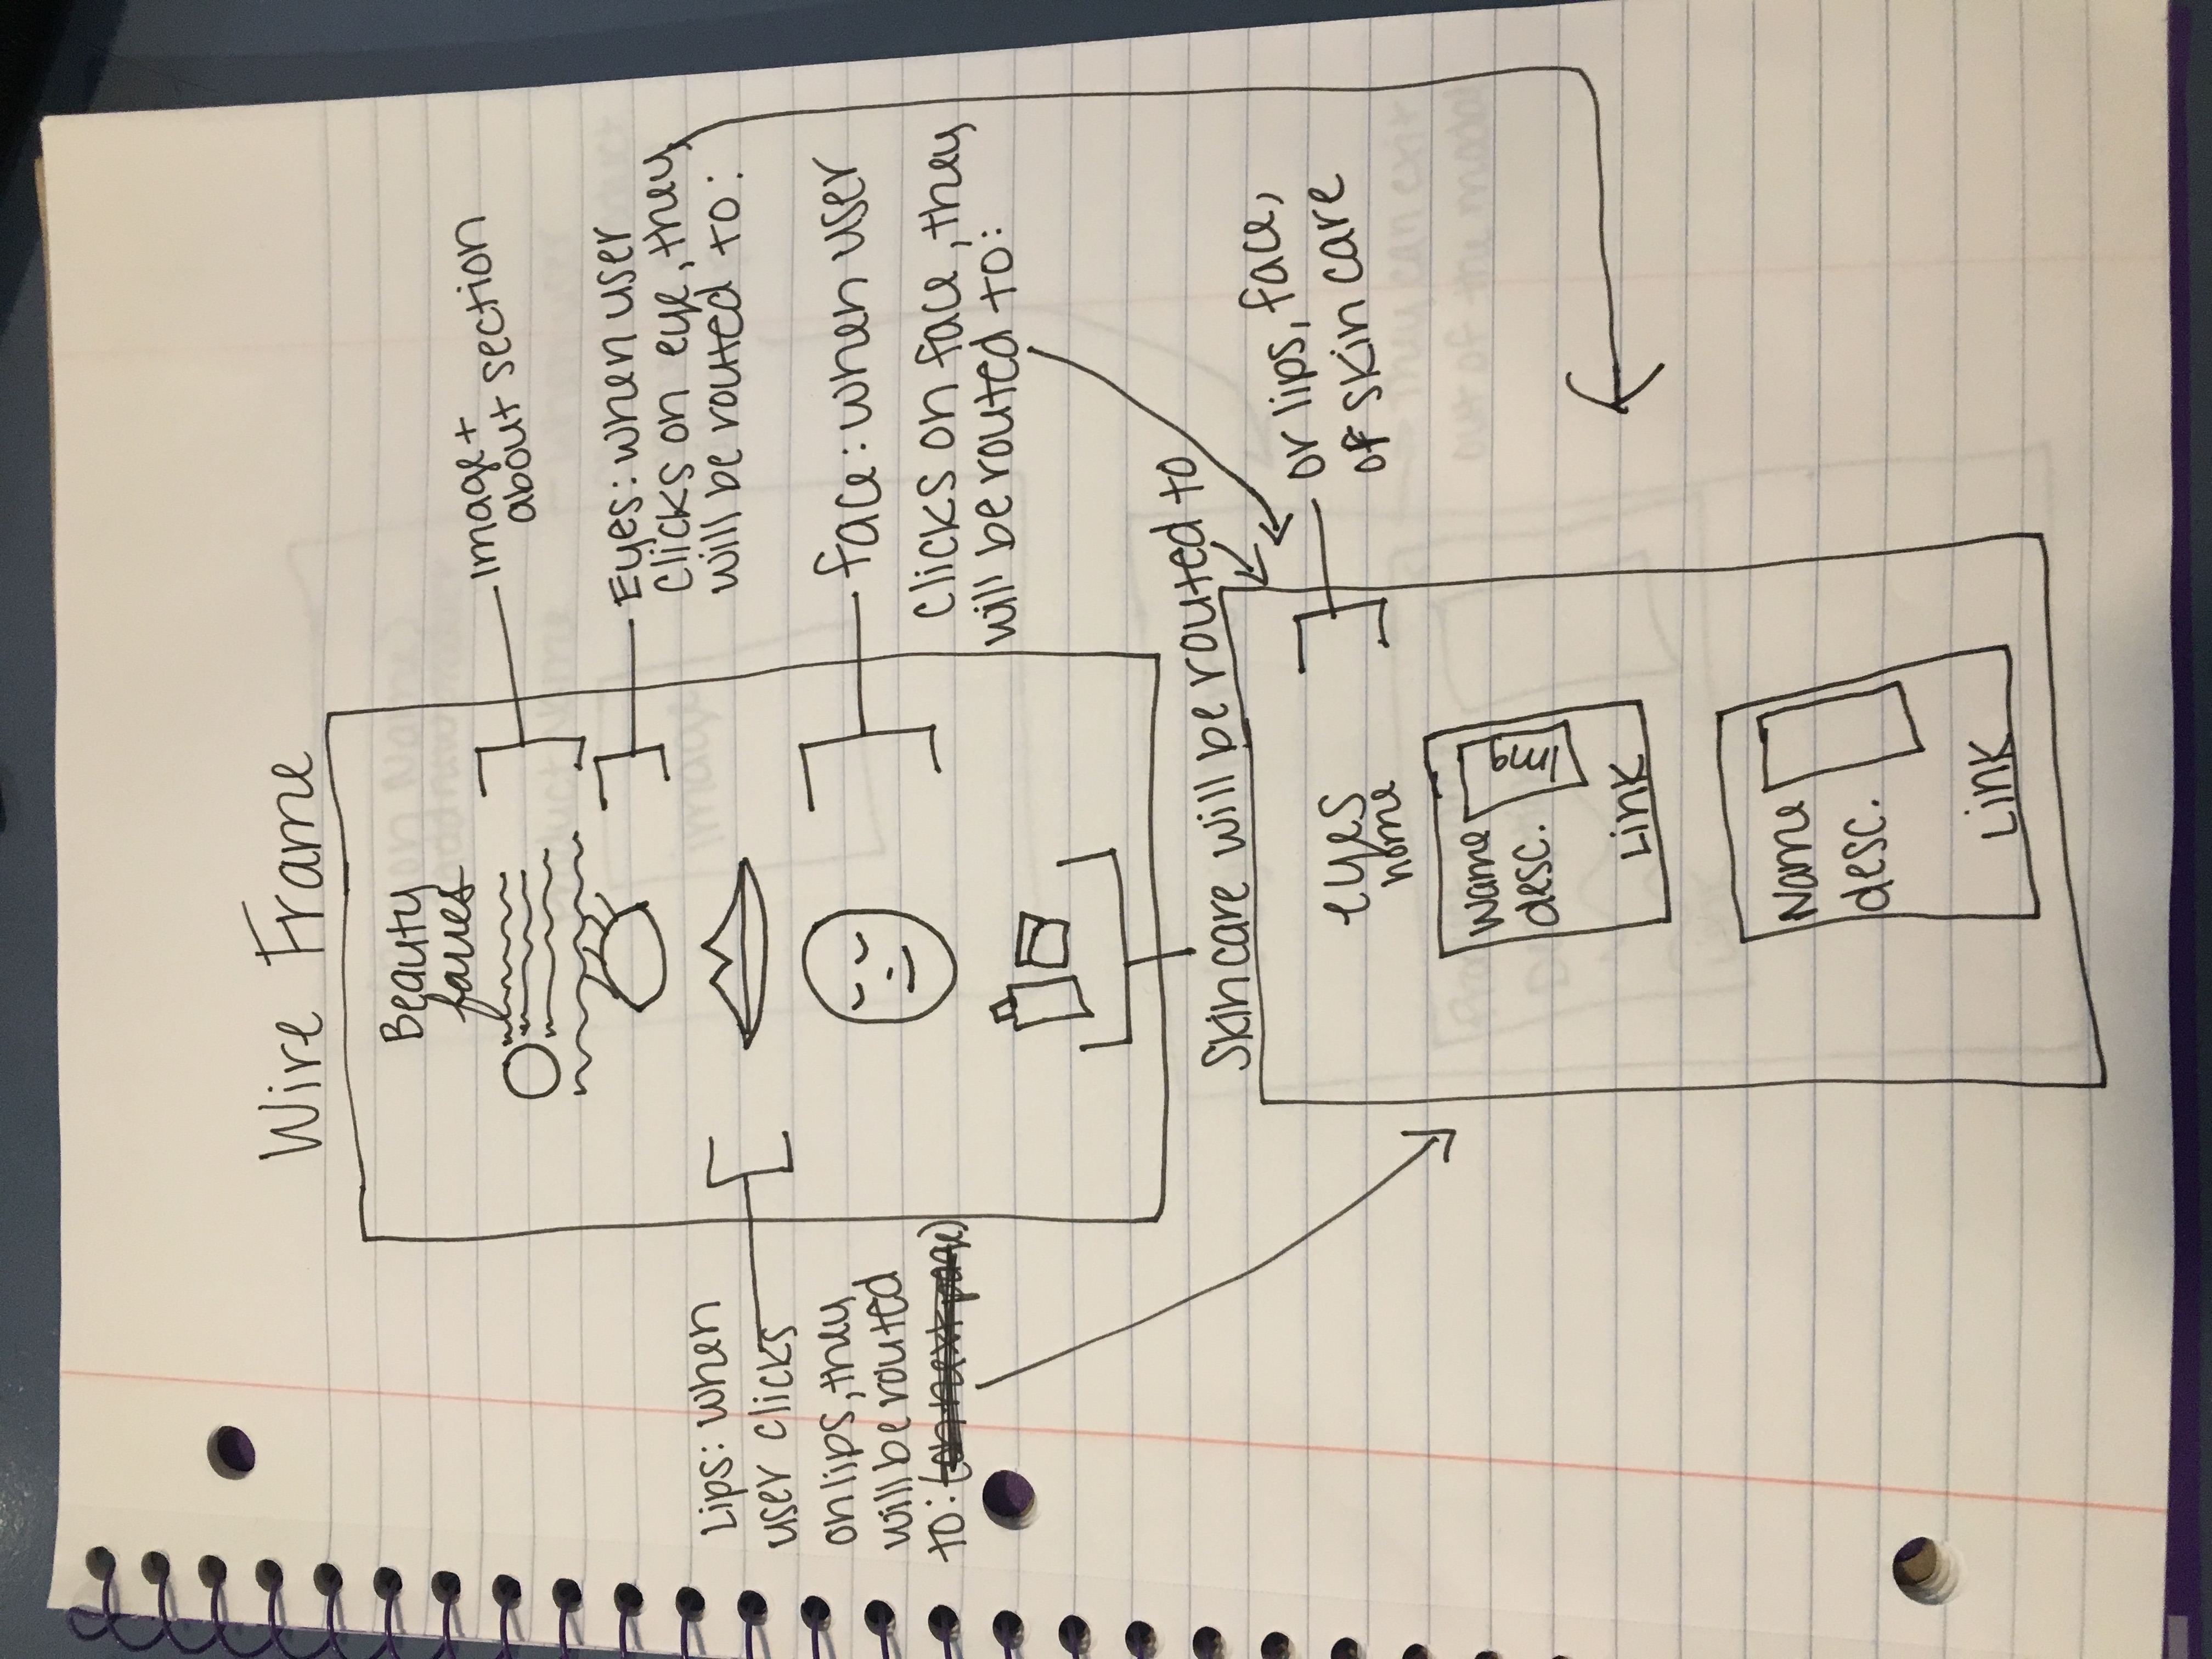 Wire Frame
Beauty
faves
Image +
about section
Eyes: when user
clicks on eye, they
will be routed to:
Lips: when
user clicks
on lips, they
will be routed
to: (on next page)
face: when user
clicks on face, they
will be routed to:
Skincare will be routed to
eyes
home
or lips, face,
of skin care
Name
desc.
Img
Link
Name
desc.
Link
image
they can exit
out of the modal